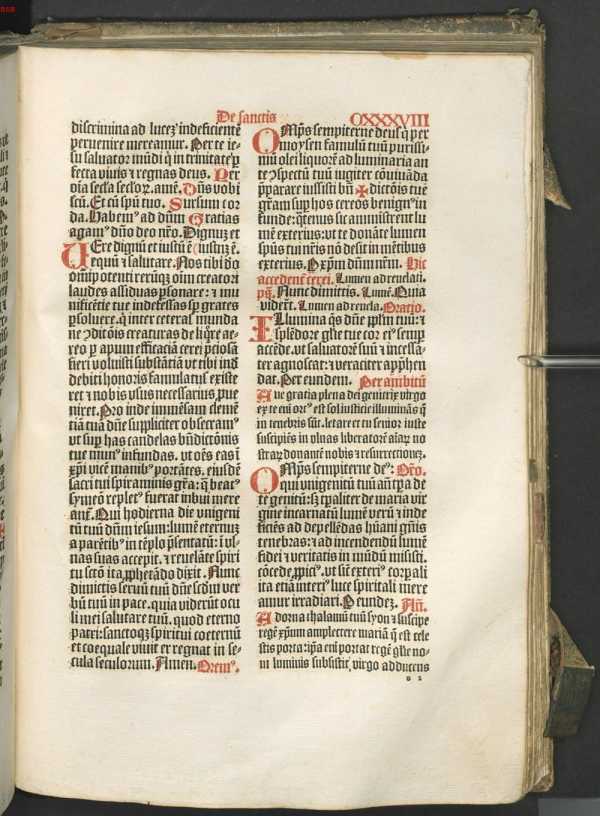 De sanctis
CXXXVIII
discrimina ad lucez indeficientē
peruenire mereamur. Per te ie-
su saluator mūdi q̄ in trinitate ꝑ
fecta viuis ⁊ regnas deus. Per
oīa secla secloꝝ. amē. Dn̄s vobi
scū. Et cū spū tuo. Sursum cor
da. Habemꝰ ad dn̄m Gratias
agamꝰ dn̄o deo nr̄o. Dignuz et
VEre dignū et iustū ē
equū ⁊ salutare. Nos tibi do
laudes assiduas ꝑsonare: ⁊ mu
nificētie tue indefessas sꝑ grates
ꝑsoluere. q̄ inter cetera mundā
fieri voluisti substātiā vt tibi ind
debiti honoris famulatꝰ existe
ret ⁊ nobis vsus necessarius pue
niret. Pro inde immēsam clemē
tiā tuā dn̄e suppliciter obsecramꝰ
vt suꝑ has candelas bn̄dictōnis
tue munꝰ infundas. vt oēs eas ī
xp̄i vicē manibꝰ portātes. eiusdē
sacri tui spiraminis gr̄a: q̄ beatꝰ
symeō repletꝰ fuerat inbui mere
anť. Qui hodierna die vnigeni
tū tuū dn̄m iesum: lumē eternuz
a parētibꝰ in tēplo p̄sentatū: ī vl-
nas suas accepit. ⁊ reuelāte spiri
tu sctō ita ꝓphetādo dixit. Nunc
dimictis seruū tuū dn̄e scdm ver
bū tuū in pace. quia viderūt ocu
li mei salutare tuū. quod eterno
patri: sanctoqꝫ spiritui coeternū
et coequale viuit et regnat in se-
cula seculorum. Amen. Oremꝰ.
OMp̄s sempiterne deus q̄ per
moysen famulū tuū purissi-
mū olei liquorē ad luminaria an
te ꝯspectū tuū iugiter cōcinnāda
p̄parare iussisti bn̄✠dictōis tue
gr̄am suꝑ hos cereos benignꝰ in
funde: q̄tenus sic amīistrent lu
mē exteriusː vt te donāte lumen
spūs tui nr̄is nō desit in mētibus
exterius. P xp̄m dn̄m nr̄m. Hic
accedent̄ cerei. Lumen ad reuelati.
pš. Nunc dimittis. Lumē. Quia
viderūt. Lumen ad reuela. Oratio.
ILlumina q̄s dn̄e ppl̄m tuū: ⁊
splēdore gl̄ie tue cor eiꝰ semp
accēde. vt saluatorē suū ⁊ incessā-
ter agnoscat: ⁊ veraciter app̄hen
dat. Per eundem. Per ambitū
Aue gratia plena dei genitrix virgo
ex te eni ortꝰ est sol iusticie illuminās q̄
in tenebris sūt. letare et tu senior iuste
suscipiēs in vlnas liberatorē aīaꝝ no
straꝝ donantē nobis ⁊ resurrectionez.
OMp̄s sempiterne deꝰ: Or̄o.
qui vnigenitū tuū an̄ tp̄a de
te genitū: sꝫ tp̄aliter de maria vir
gine incarnatū lumē verū ⁊ inde
ficiēs ad depellēdas hūani gn̄is
tenebras: ⁊ ad incendendū lumē
fidei ⁊ veritatis in mūdū misisti.
cōcede ꝓpiciꝰ. vt sič exteriꝰ corp̄ali
ita etiā interiꝰ luce spirituali mere
amur irradiari. P eundez. Añ.
Adorna thalamū tuū syon ⁊ suscipe
regē xp̄um amplectere mariā q̄ est cele
stis porta: ip̄a eni portat regē gl̄ie no-
ui luminis subsistit virgo adducens